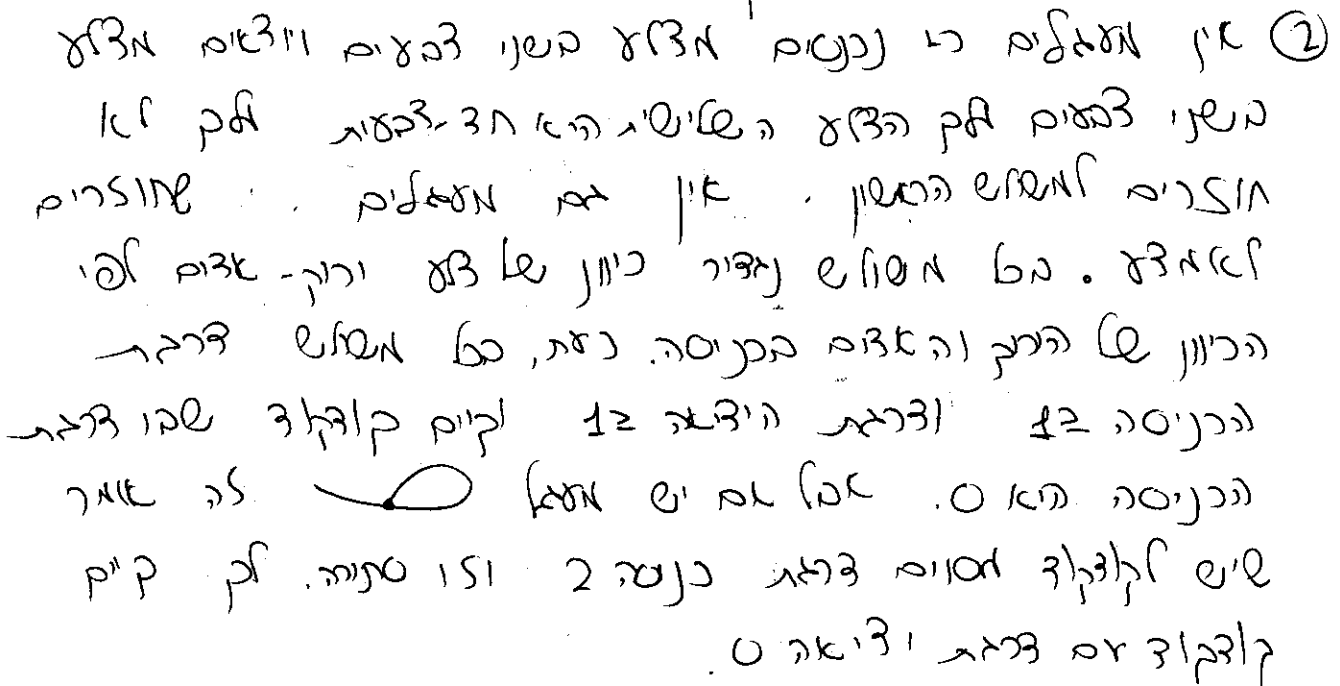 ② אין מעגלים כי נכנסים מצלע בשני צבעים ויוצאים מצלע
בשני צבעים ולכן הצלע השלישית היא חד-צבעית ולכן לא
חוזרים למשולש הראשון. אין גם מעגלים שחוזרים
לאמצע. בכל משולש נגדיר כיוון של צלע ירוק-אדום לפי
הכיוון של הירוק והאדום בכניסה. כעת, בכל משולש דרגת
הכניסה ≤1 ודרגת היציאה ≤1 וקיים קודקוד שבו דרגת
הכניסה היא 0. אבל אם יש מעגל זה אומר
שיש לקודקוד מסוים דרגת כניסה 2 וזו סתירה. לכן קיים
קודקוד עם דרגת יציאה 0.